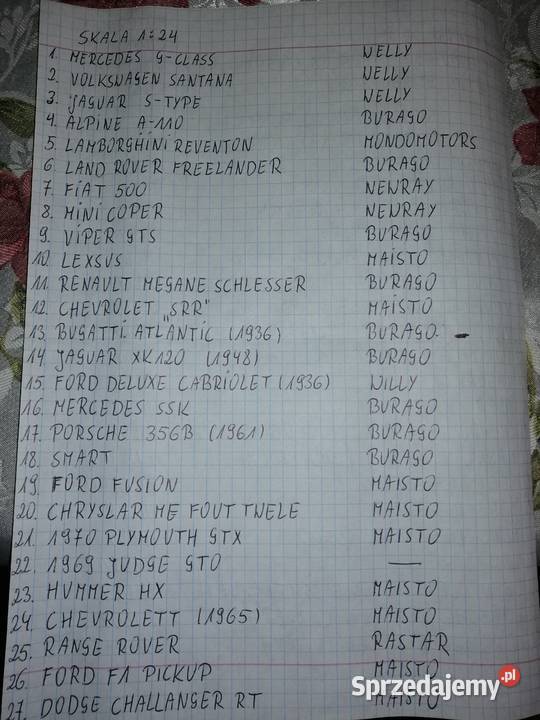 SKALA 1:24
1. MERCEDES G-CLASS WELLY
2. VOLKSWAGEN SANTANA WELLY
3. JAGUAR S-TYPE WELLY
4. ALPINE A-110 BURAGO
5. LAMBORGHINI REVENTON MONDOMOTORS
6. LAND ROVER FREELANDER BURAGO
7. FIAT 500 NEWRAY
8. MINI COPER NEWRAY
9. VIPER GTS BURAGO
10. LEXSUS MAISTO
11. RENAULT MEGANE SCHLESSER BURAGO
12. CHEVROLET "SRR" MAISTO
13. BUGATTI ATLANTIC (1936) BURAGO. -
14. JAGUAR XK120 (1948) BURAGO
15. FORD DELUXE CABRIOLET (1936) WILLY
16. MERCEDES SSK BURAGO
17. PORSCHE 356B (1961) BURAGO
18. SMART BURAGO
19. FORD FUSION MAISTO
20. CHRYSLAR ME FOUT TWELE MAISTO
21. 1970 PLYMOUTH GTX MAISTO
22. 1969 JUDGE GTO —
23. HUMMER HX MAISTO
24. CHEVROLETT (1965) MAISTO
25. RANGE ROVER RASTAR
26. FORD F1 PICKUP MAISTO
27. DODGE CHALLANGER RT MAISTO
Sprzedajemy.pl